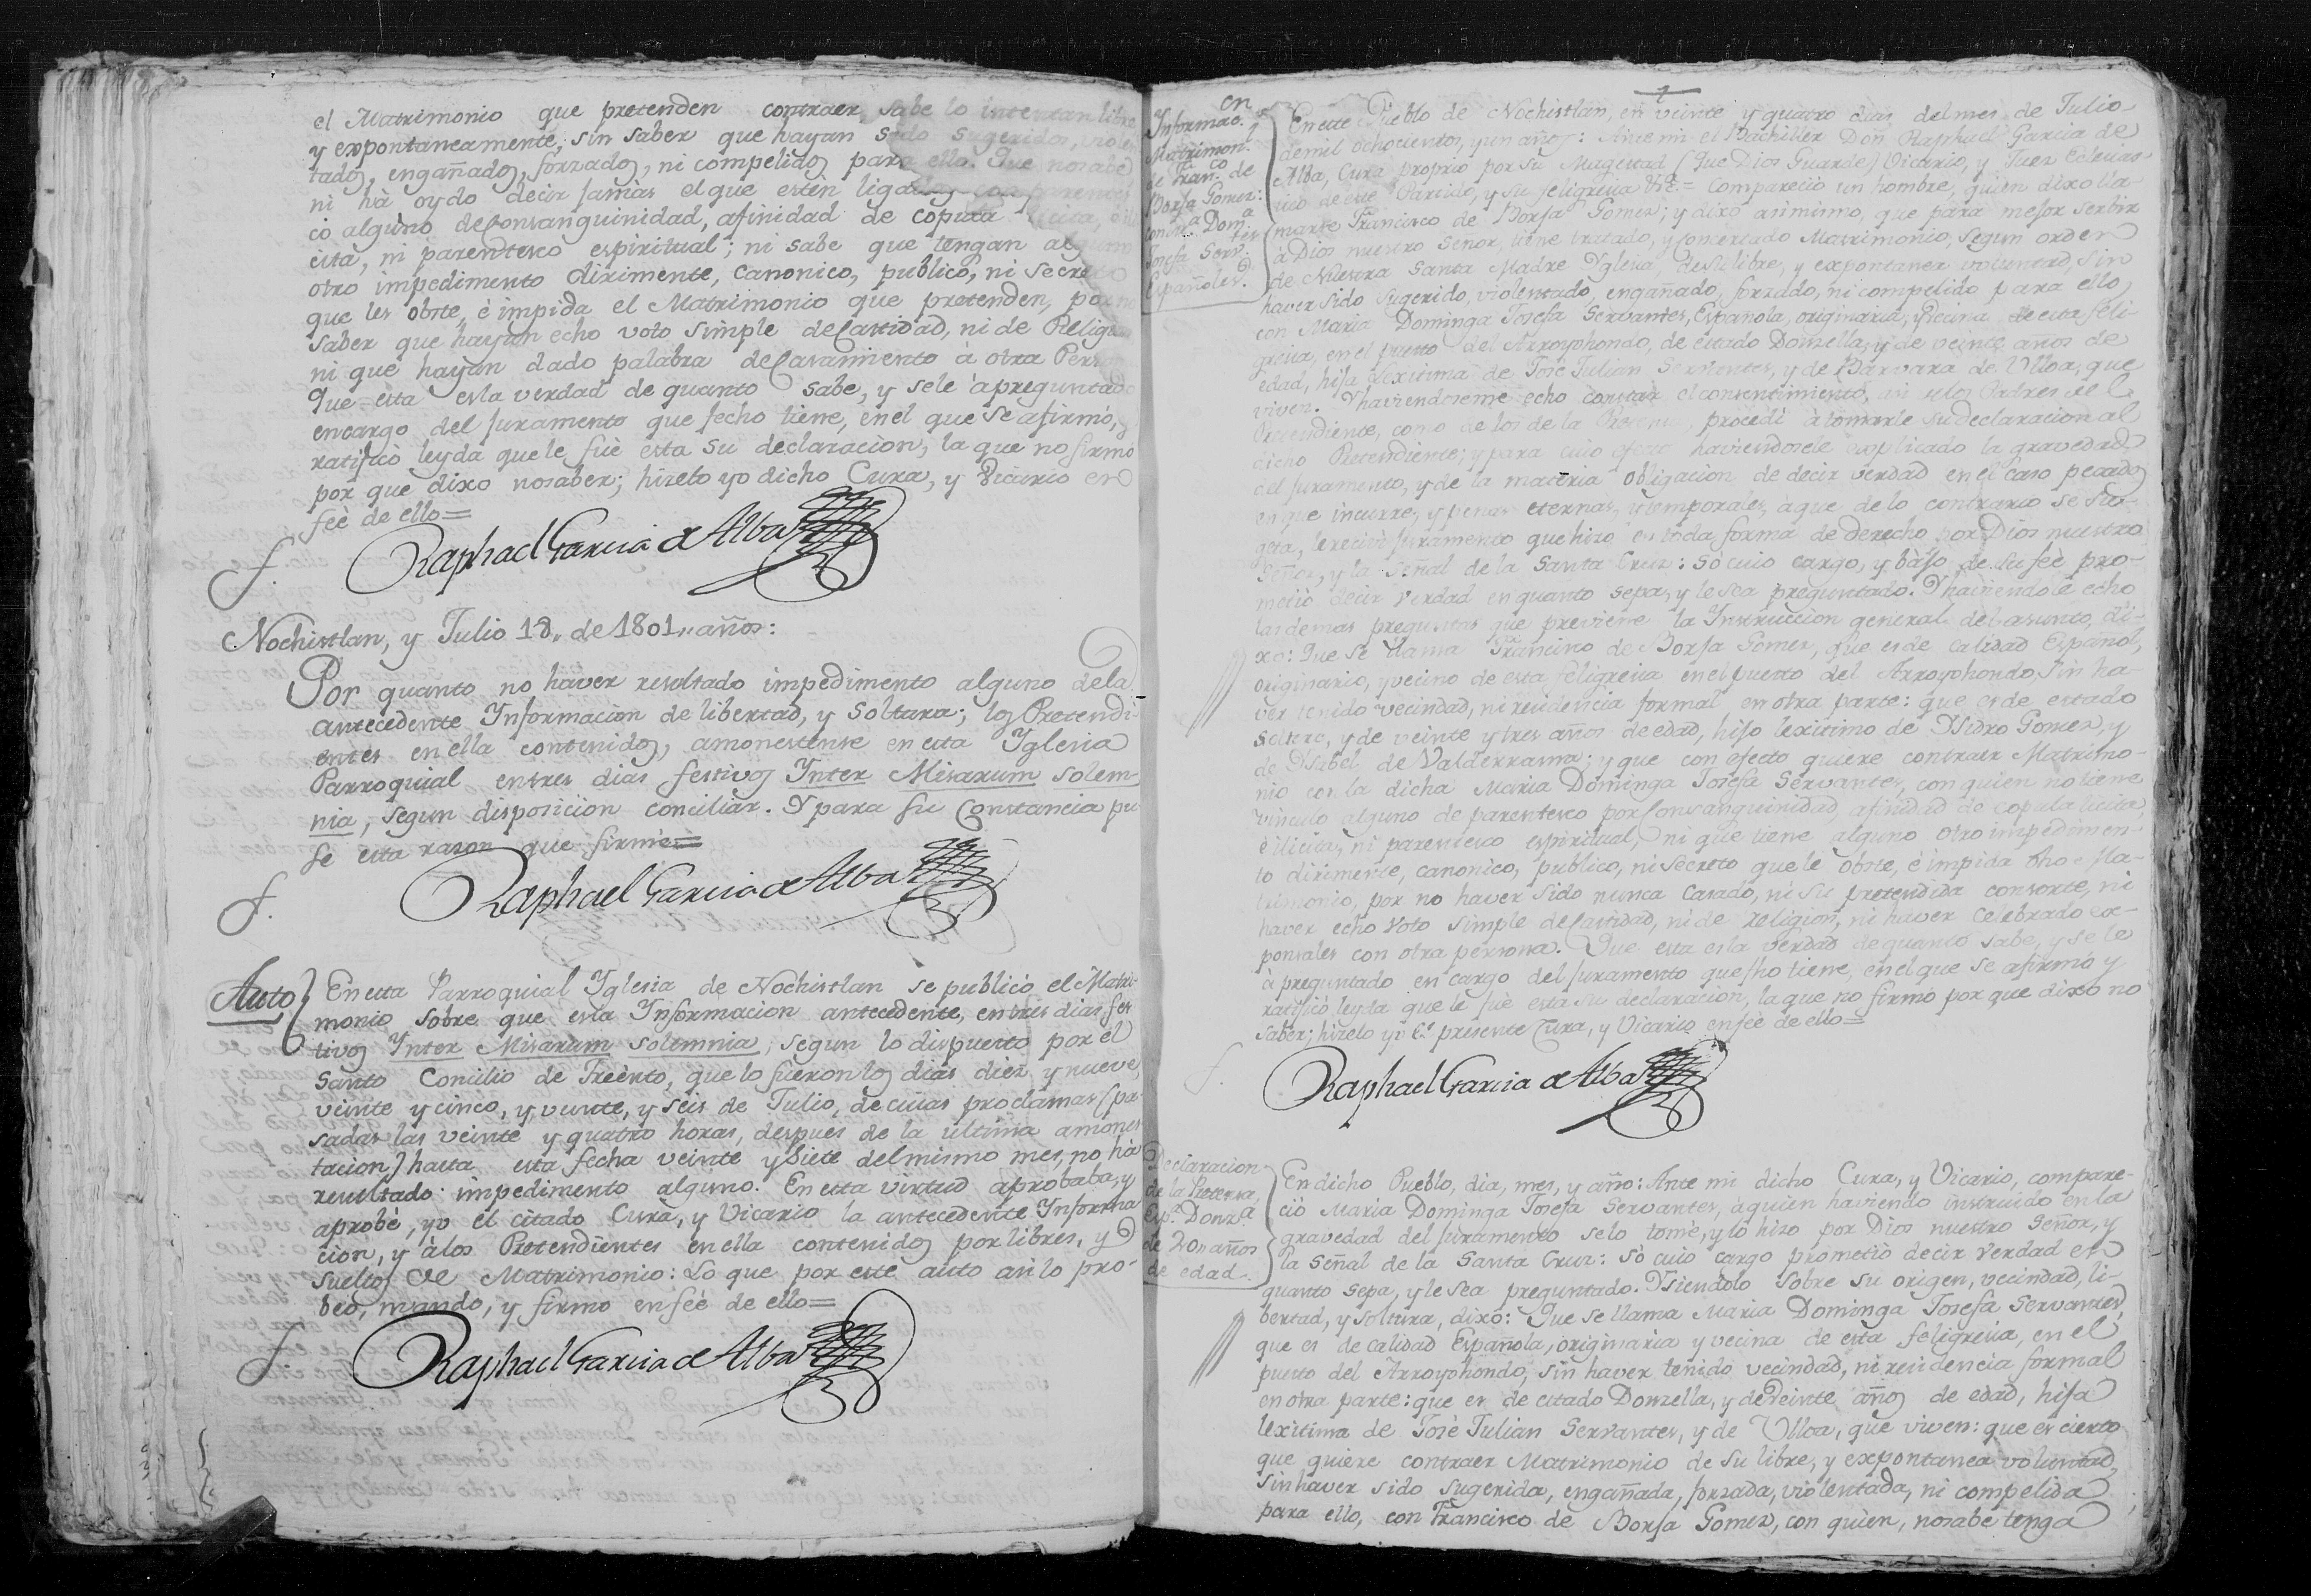 el Matrimonio que pretenden contraer, sabe lo intentan libre
y expontaneamente, sin saber que hayan sido sugeridos, viole
tados, engañados, forzados, ni compelidos para ello. Que no sabe
ni hà oydo decir jamàs el que estèn ligados con parentes
co alguno de Consanguinidad, afinidad de copula licita, ò ili
cita, ni parentesco espiritual; ni sabe que tengan algun
otro impedimento dirimente, canonico, publico, ni secreto
que les obste, è impida el Matrimonio que pretenden, por no
saber que hayan echo voto simple de Castidad, ni de Religion
ni que hayan dado palabra de Casamiento à otra Persona
Que esta es la verdad de quanto sabe, y se le à preguntado
encargo del juramento que fecho tiene, en el que se afirmó, y
ratificó leyda que le fuè esta su declaracion, la que no firmo
por que dixo no saber; hizelo yo dicho Cura, y Vicario en
feè de ello=
Raphael Garcia de Alba
Nochistlan, y Julio 18,, de 1801,, años:
Por quanto no haver resultado impedimento alguno de la
antecedente Ynformacion de libertad, y Soltura; los Pretendi
entes en ella contenidos, amonestense en esta Yglesia
Parroquial en tres dias festivos Ynter Misarum solem-
nia, segun disposicion conciliar. Y para su Constancia pu
se esta razon que firmè=
Raphael Garcia de Alba
Auto
En esta Parroquial Yglesia de Nochistlan se publicó el Matri
monio sobre que es la Ynformacion antecedente, en tres dias fes
tivos Ynter Misarum solemnia, segun lo dispuesto por el
Santo Concilio de Treènto, que lo fueron los dias diez y nueve,
veinte y cinco, y veinte, y seis de Julio, de cuias proclamas (pa-
sadas las veinte y quatro horas, despues de la ultima amones
tacion) hasta esta fecha veinte y Siete del mismo mes, no hà
resultado impedimento alguno. En esta virtud aprobaba, y
aprobè, yo el citado Cura, y Vicario la antecedente Ynforma
cion, y à los Pretendientes en ella contenidos por libres, y
sueltos de Matrimonio: Lo que por este auto asi lo pro-
beo, mando, y firmo en feè de ello=
Raphael Garcia de Alba
en
1
Ynformac.n
Matrimon.l
de Fran.co de
Borja Gomez:
contra Dom.a
Josefa Serv.tes
Españoles.
En este Pueblo de Nochistlan, en veinte y quatro dias del mes de Julio
de mil ochocientos, y un años: Ante mi el Bachiller Don Raphael Garcia de
Alba, Cura proprio por su Magestad (Que Dios Guarde) Vicario, y Juez Eclesias-
tico de este Partido, y su feligresia = Compareciò un hombre, quien dixo lla-
marse Francisco de Borja Gomez; y dixo asimismo, que para mejor serbir
à Dios nuestro Señor, tiene tratado, y concertado Matrimonio, segun orden
de Nuestra Santa Madre Yglesia de su libre, y expontanea voluntad, sin
haver sido sugerido, violentado, engañado, forzado, ni compelido para ello,
con Maria Dominga Josefa Servantes, Española, originaria, y vecina de esta feli-
gresia, en el puesto del Arroyohondo, de estado Donzella, y de veinte años de
edad, hija lexitima de José Julian Servantes, y de Barvara de Ulloa, que
viven. Y haviendoseme echo constar el consentimiento, asi de los Padres del
Pretendiente, como de los de la Pretensa, procedì à tomarle su declaracion al
dicho Pretendiente; y para cuio efecto haviendosele explicado la gravedad
del juramento, y de la materia obligacion de decir verdad en el caso pecado
en que incurre, y penas eternas, y temporales, à que de lo contrario se su-
geta, le recivì juramento que hizo en toda forma de derecho por Dios nuestro
Señor, y la Señal de la Santa Cruz: sò cuio cargo, y bàjo de su feè pro-
metiò decir verdad en quanto sepa, y le sea preguntado. Y haviendole echo
las demas preguntas que previene la Ynstruccion general del asunto, di-
xo: Que se llama Francisco de Borja Gomez, que es de calidad Español,
originario, y vecino de esta feligresia en el puesto del Arroyohondo, sin ha-
ver tenido vecindad, ni residencia formal en otra parte: que es de estado
Soltero, y de veinte y tres años de edad, hijo lexitimo de Ysidro Gomez, y
de Ysabel de Valderrama; y que con efecto quiere contraer Matrimo-
nio con la dicha Maria Dominga Josefa Servantes, con quien no tiene
vinculo alguno de parentesco por Consanguinidad, afinidad de copula licita,
è ilicita, ni parentesco espiritual, ni que tiene alguno otro impedimen-
to dirimente, canonico, publico, ni secreto que le obste, è impida dho Ma-
trimonio, por no haver sido nunca Casado, ni su pretendida consorte, ni
haver echo voto simple de Castidad, ni de religion, ni haver celebrado es-
ponsales con otra persona. Que esta es la verdad de quanto sabe, y se le
à preguntado en cargo del juramento que fho tiene, en el que se afirmó y
ratificó leyda que le fuè esta su declaracion, la que no firmò por que dixo no
saber; hizelo yo el presente Cura, y Vicario en feè de ello=
Raphael Garcia de Alba
Declaracion
de la Pretensa,
Esp.a Donz.a
de 20,, años
de edad.
En dicho Pueblo, dia, mes, y año: Ante mi dicho Cura, y Vicario, compare-
ciò Maria Dominga Josefa Servantes, à quien haviendo instruido en la
gravedad del juramento se lo tomè, y lo hizo por Dios nuestro Señor, y
la Señal de la Santa Cruz: sò cuio cargo prometiò decir verdad en
quanto sepa, y le sea preguntado. Y siendolo sobre su origen, vecindad, li-
bertad, y soltura, dixo: Que se llama Maria Dominga Josefa Servantes,
que es de calidad Española, originaria y vecina de esta feligresia, en el
puesto del Arroyohondo, sin haver tenido vecindad, ni residencia formal
en otra parte: que es de estado Donzella, y de Veinte años de edad, hija
lexitima de José Julian Servantes, y de Ulloa, que viven: que es cierto
que quiere contraer Matrimonio de su libre, y expontanea voluntad,
sin haver sido sugerida, engañada, forzada, violentada, ni compelida
para ello, con Francisco de Borja Gomez, con quien, no sabe tenga